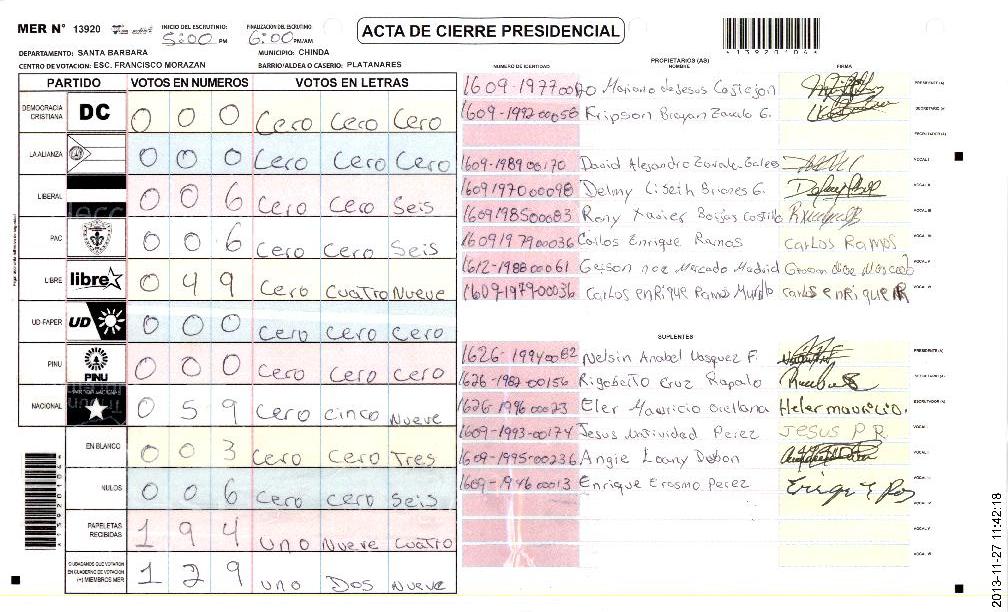 MER N° 13920 INICIO DEL ESCRUTINIO 5:00 PM FINALIZACIÓN DEL ESCRUTINIO 6:00 PM/AM ACTA DE CIERRE PRESIDENCIAL
*13920104*
DEPARTAMENTO: SANTA BARBARA MUNICIPIO: CHINDA
CENTRO DE VOTACION: ESC. FRANCISCO MORAZAN BARRIO/ALDEA O CASERIO: PLATANARES
PARTIDO VOTOS EN NUMEROS VOTOS EN LETRAS
DEMOCRACIA CRISTIANA DC 0 0 0 Cero Cero Cero
LA ALIANZA 0 0 0 Cero Cero Cero
LIBERAL 0 0 6 Cero Cero Seis
PAC 0 0 6 Cero Cero Seis
LIBRE libre 0 4 9 Cero Cuatro Nueve
UD-FAPER UD 0 0 0 Cero Cero Cero
PINU PINU 0 0 0 Cero Cero Cero
NACIONAL 0 5 9 Cero Cinco Nueve
EN BLANCO 0 0 3 Cero Cero Tres
NULOS 0 0 6 Cero Cero Seis
PAPELETAS RECIBIDAS 1 9 4 Uno Nueve Cuatro
CIUDADANOS QUE VOTARON EN CUADERNO DE VOTACION (+) MIEMBROS MER 1 2 9 Uno Dos Nueve
PROPIETARIOS (AS)
NUMERO DE IDENTIDAD NOMBRE FIRMA
Mariano de Jesus Castejon PRESIDENTE (A)
1609-1992-00050 Kripson Brayan Zavala G. SECRETARIO (A)
ESCRUTADOR (A)
1609-1989-00170 David Alejandro Zavala VOCAL I
1609197000098 Delmy Liseth Briones G. VOCAL II
1609198500083 Rony Xavier Borjas Castillo VOCAL III
1609197900036 Carlos Enrique Ramos Carlos Ramos VOCAL IV
1612-1988-00061 Gerson noe Mercado Madrid VOCAL V
1609-1979-00036 Carlos enRique Ramos carlos enRique R VOCAL VI
SUPLENTES
1626-1994-00082 Nelsin Anabel Vasquez F. PRESIDENTE (A)
1626-1982-00156 Rigoberto Cruz Rapalo SECRETARIO (A)
1626-1996-00023 Eler Mauricio Orellana Heler mauricio O. ESCRUTADOR (A)
1609-1993-00174 Jesus Natividad Perez JESUS P R VOCAL I
1609-1995-00236 Angie Loany VOCAL II
1609-1946-00013 Enrique Erasmo Perez VOCAL III
VOCAL IV
VOCAL V
VOCAL VI
*13920104*
2013-11-27 11:42:18